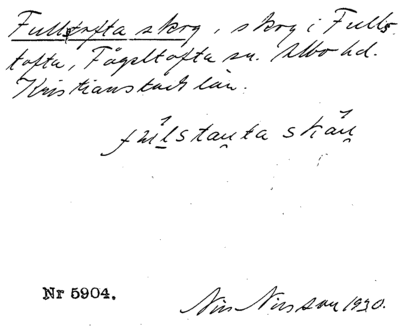 Fullstofta skog, skog i Fulls
tofta, Fågeltofta sn. Albo hd.
Kristianstads län.
Nr 5904.
Nils Nilsson 1930.